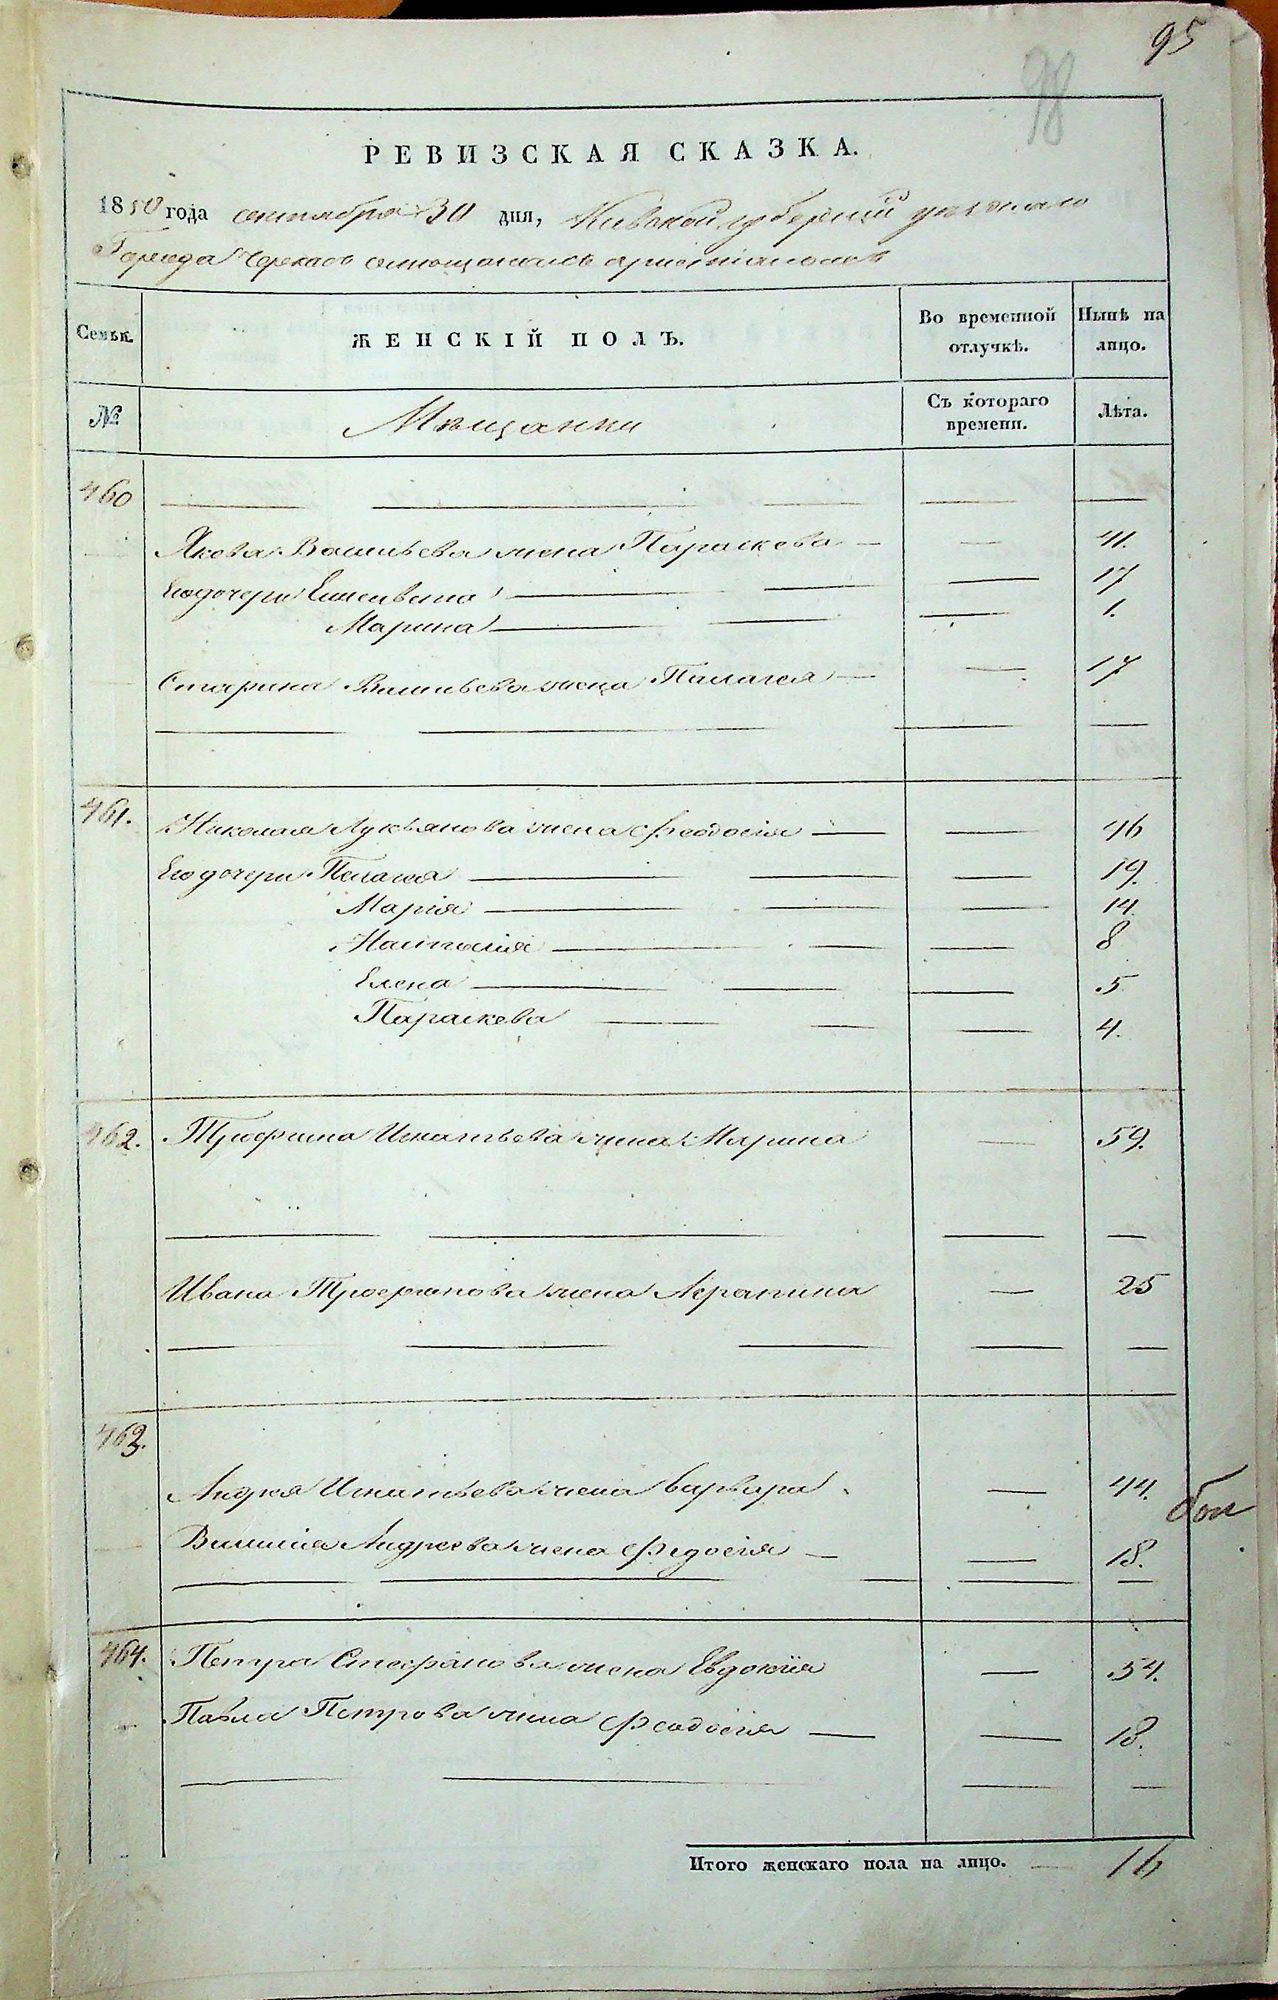 95
98
РЕВИЗСКАЯ СКАЗКА.
1850 года сентября 30 дня, Киевской губернии уезднаго
Города Черкас о мещанах христианах
Семьи. ЖЕНСКІЙ ПОЛЪ. Во временной отлучкѣ. Нынѣ на лицо.
№ Мещанки Съ котораго времени. Лѣта.
460
Якова Васильева жена Параскева — — 41.
Его дочери Елисавета — — 17
Марина — — 1.
Васильева жена Палагея — — 17
461. Николая Лукьянова жена Феодосія — — 46
Его дочери Пелагея — — 19.
Марія — — 14.
Настасія — — 8
Елена — — 5
Параскева — — 4.
462. Трофима Игнатьева жена Марина — 59.
Ивана Трофимова жена Агрипина — 25
463.
Андрея Игнатьева жена Варвара — 44.
Василія Андреева жена Федосія — — 18.
464. Петра Стефанова жена Евдокія — 54.
Павла Петрова жена Феодосія — — 18.
Итого женскаго пола на лицо. — 16